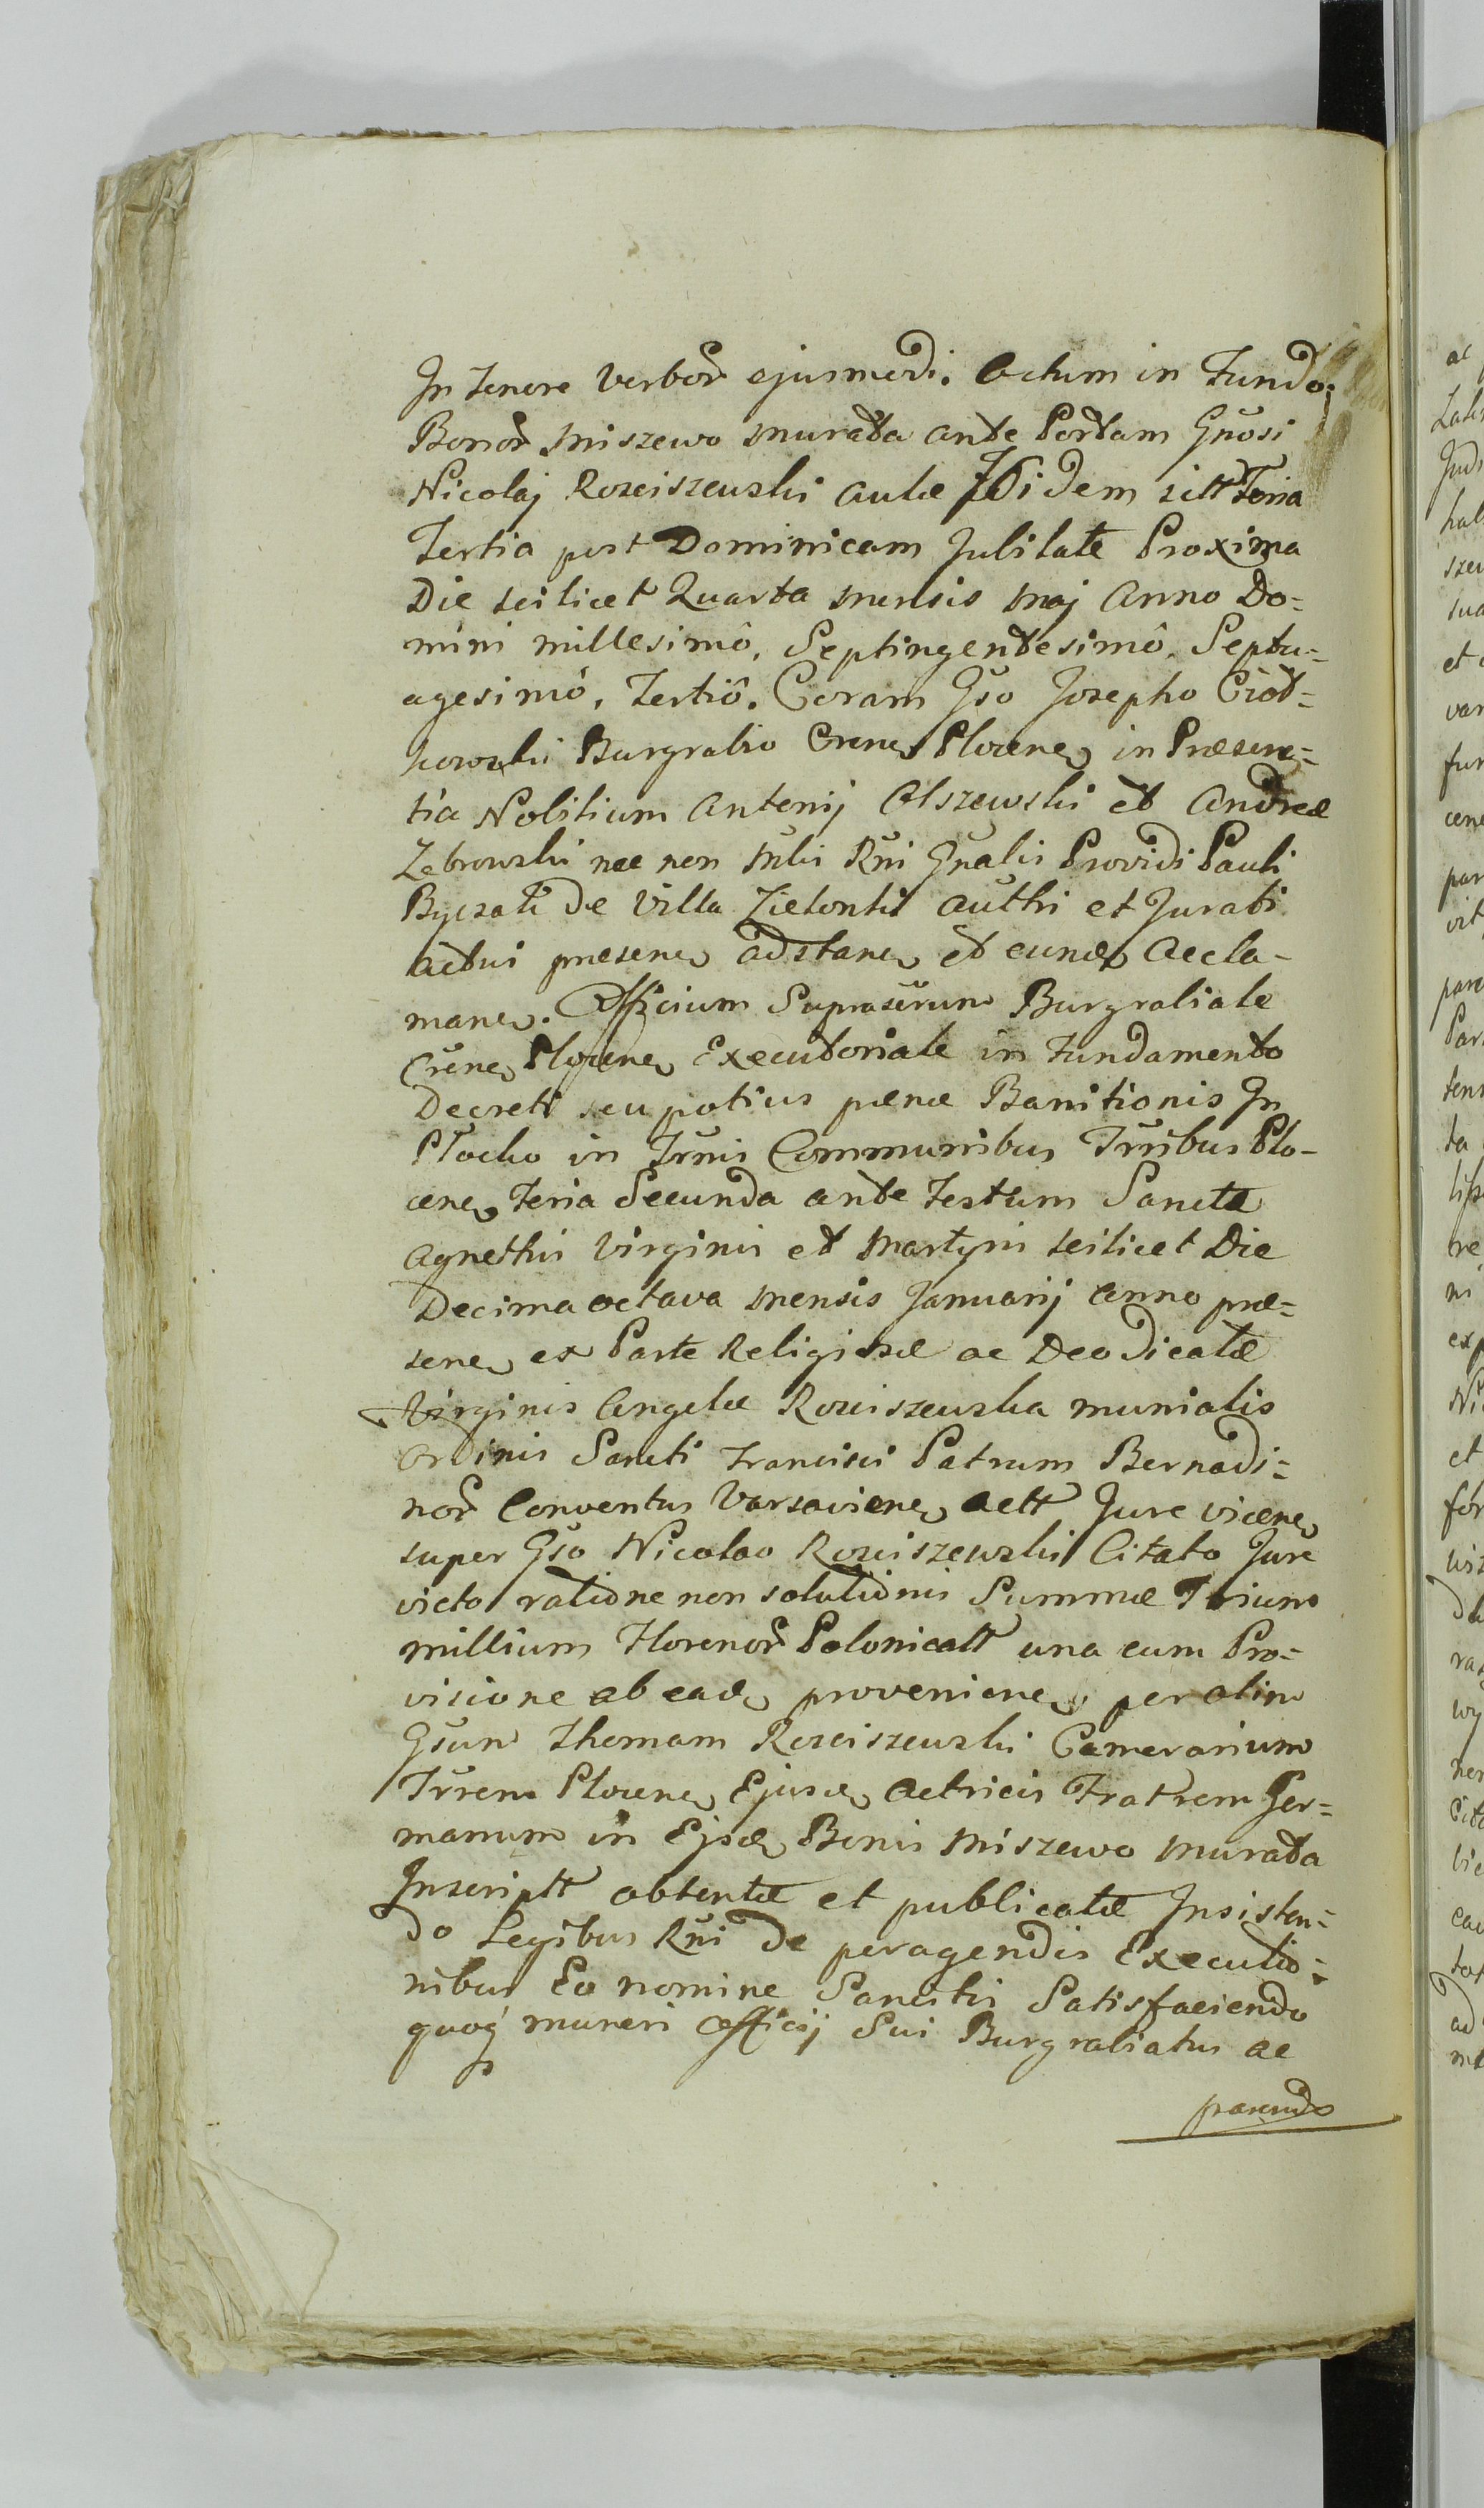 In Tenore Verbor ejusmodi. Actum in Fundo
Bonor Miszewo Murata ante Portam Gnosi
Nicolaj Rosciszewski aulæ Ibidem sitt Feria
Tertia post Dominicam Jubilate Proxima
Die scilicet Quarta Mensis Maj Anno Do=
mini millesimô, Septingentesimô, Septu=
agesimô, Tertiô. Coram Gso Josepho Ciot=
kowski Burgrabio Crens Plocens in Præsen=
tia Nobilium Antonij Olszewski et Andreæ
Zebrowski nec non Mlis Rni Gnalis Providi Pauli
Byczak de Villa Zielonki Authi et Jurati
actui præsens adstans et eunde Accla=
mans. Officium Suprascrum Burgrabiale
Crens Plocens Executoriale in Fundamento
Decreti seu potius pænæ Banitionis In
Płocko in Trnis Communibus Trribus Plo=
cens Feria Secunda ante Festum Sanctæ
Agnethis Virginis et Martyris scilicet Die
Decima octava Mensis Januarij Anno præ=
sens ex Parte Religiosæ ac Deo Dicatæ
Virginis Angelæ Rosciszewska munialis
Ordinis Sancti Francisci Patrum Bernadi=
nor Conventus Varsaviens actt Jure vicens
super Gso Nicolao Rosciszewski Citato Jure
victo ratione non solutionis Summæ Trium
millium Florenor Polonicatt una cum Pro=
visione ab eade proveniens per olim
Gsum Thomam Rosciszewski Camerarium
Trrem Plocens Ejusde Actricis Fratrem Ger=
manum in Ejsde Bonis Miszewo Murata
Inscriptt obtentæ et publicatæ Insisten=
do Legibus Rni de peragendis Executio=
nibus Eo nomine Sancitis Satisfaciendo
quoq muneri Officij Sui Burgrabiatus ac
parendo